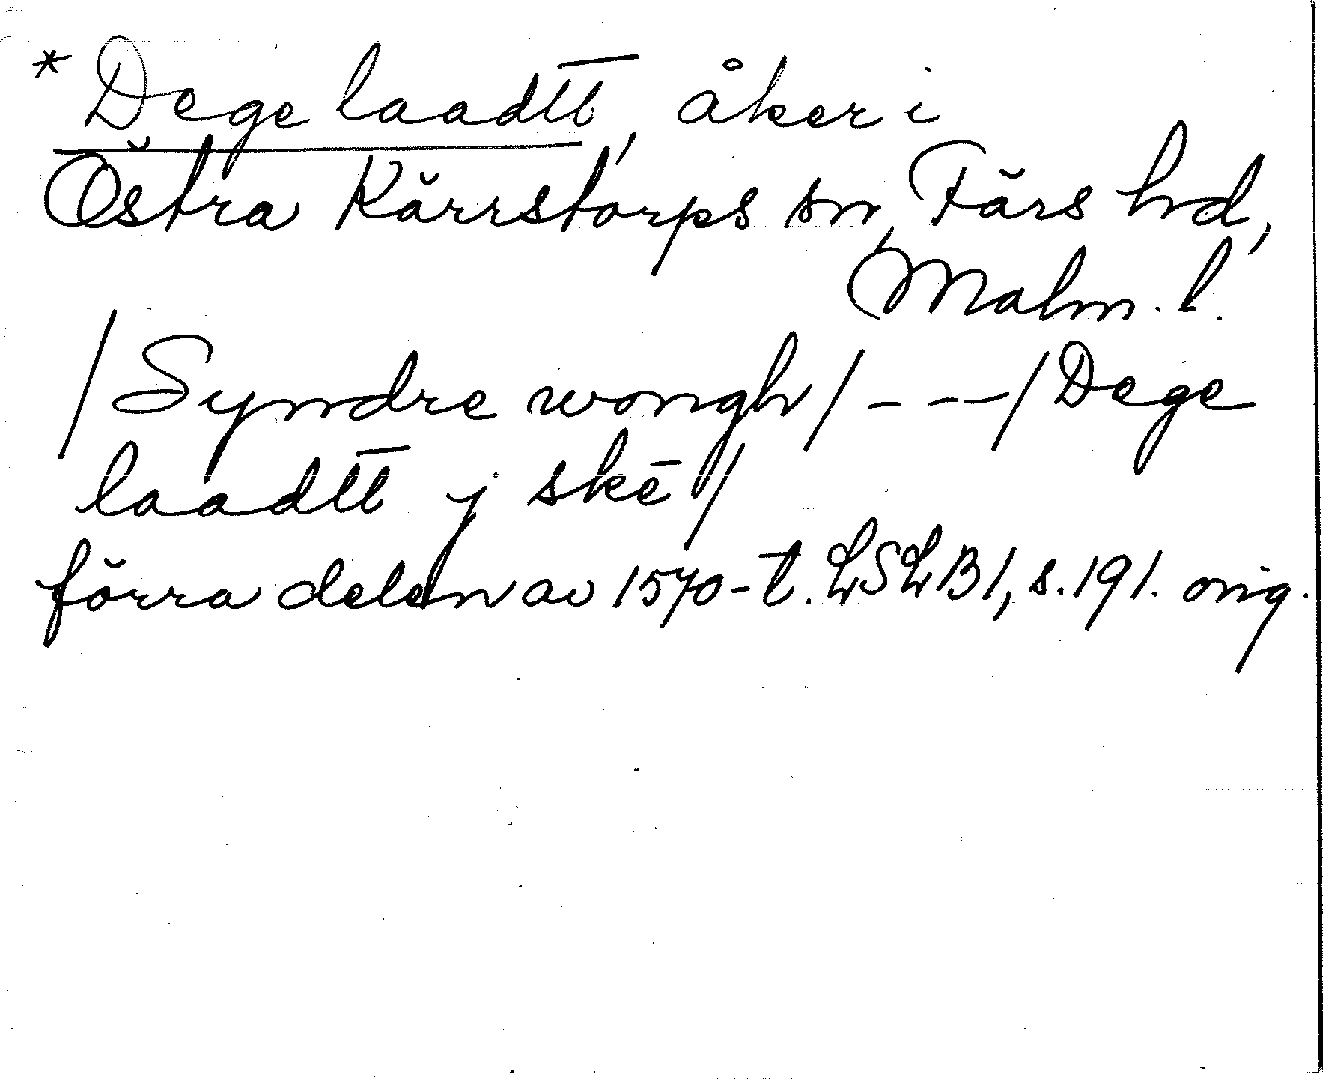 * Dege laadtt̅, åker i
Östra Kärrstorps sn, Färs hd,
Malm. l.
/Syndre wongh/ - - -/Dege
laadtt̅ j skē/
förra delen av 1570-t. LSLB1, s. 191. orig.